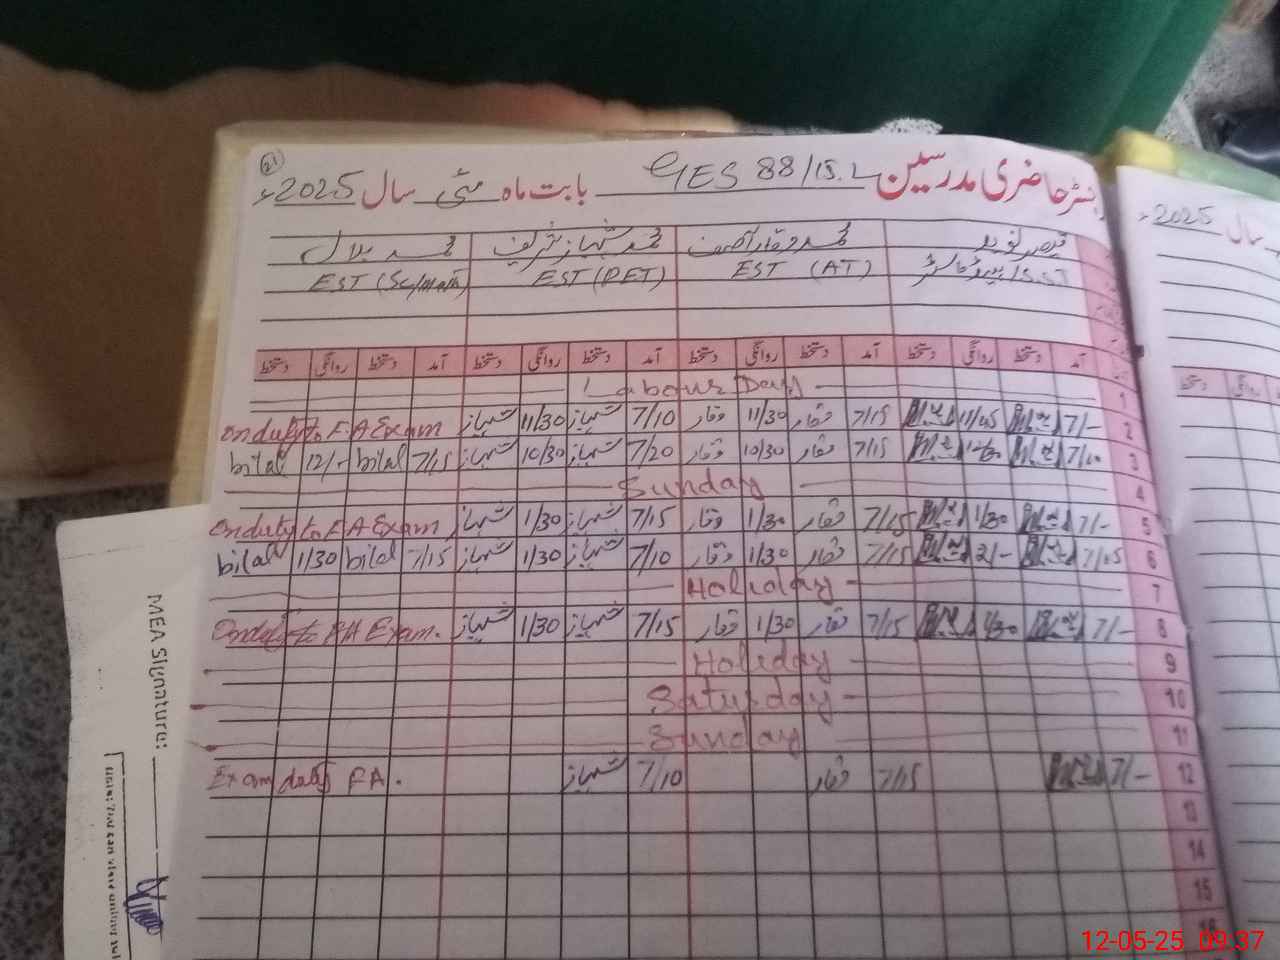 رجسٹر حاضری مدرسین GES 88/15.L بابت ماہ مئی سال 2025ء
21
قیصر نوید محمد وقار آصف محمد شہباز شریف محمد بلال
S.S.T/ہیڈ ماسٹر EST (AT) EST (PET) EST (Sc/Math)
آمد دستخط روانگی دستخط آمد دستخط روانگی دستخط آمد دستخط روانگی دستخط آمد دستخط روانگی دستخط
1 Labour Day
2 7/- 11/45 7/15 وقار 11/30 وقار 7/10 شہباز 11/30 شہباز On duty to F.A Exam
3 7/15 وقار 10/30 وقار 7/20 شہباز 10/30 شہباز 7/15 bilal 12/- bilal
4 Sunday
5 7/- 1/30 7/15 وقار 1/30 وقار 7/15 شہباز 1/30 شہباز On duty to F.A Exam
6 7/05 2/- 7/15 وقار 1/30 وقار 7/10 شہباز 1/30 شہباز 7/15 bilal 1/30 bilal
7 Holiday
8 7/- 1/30 7/15 وقار 1/30 وقار 7/15 شہباز 1/30 شہباز On duty to F.A Exam.
9 Holiday
10 Saturday
11 Sunday
12 7/- 7/15 وقار 7/10 شہباز Exam duty F.A.
13
14
15
16
سال 2025ء
دستخط روانگی
MEA Signature:
Note: You can view
12-05-25 09:37